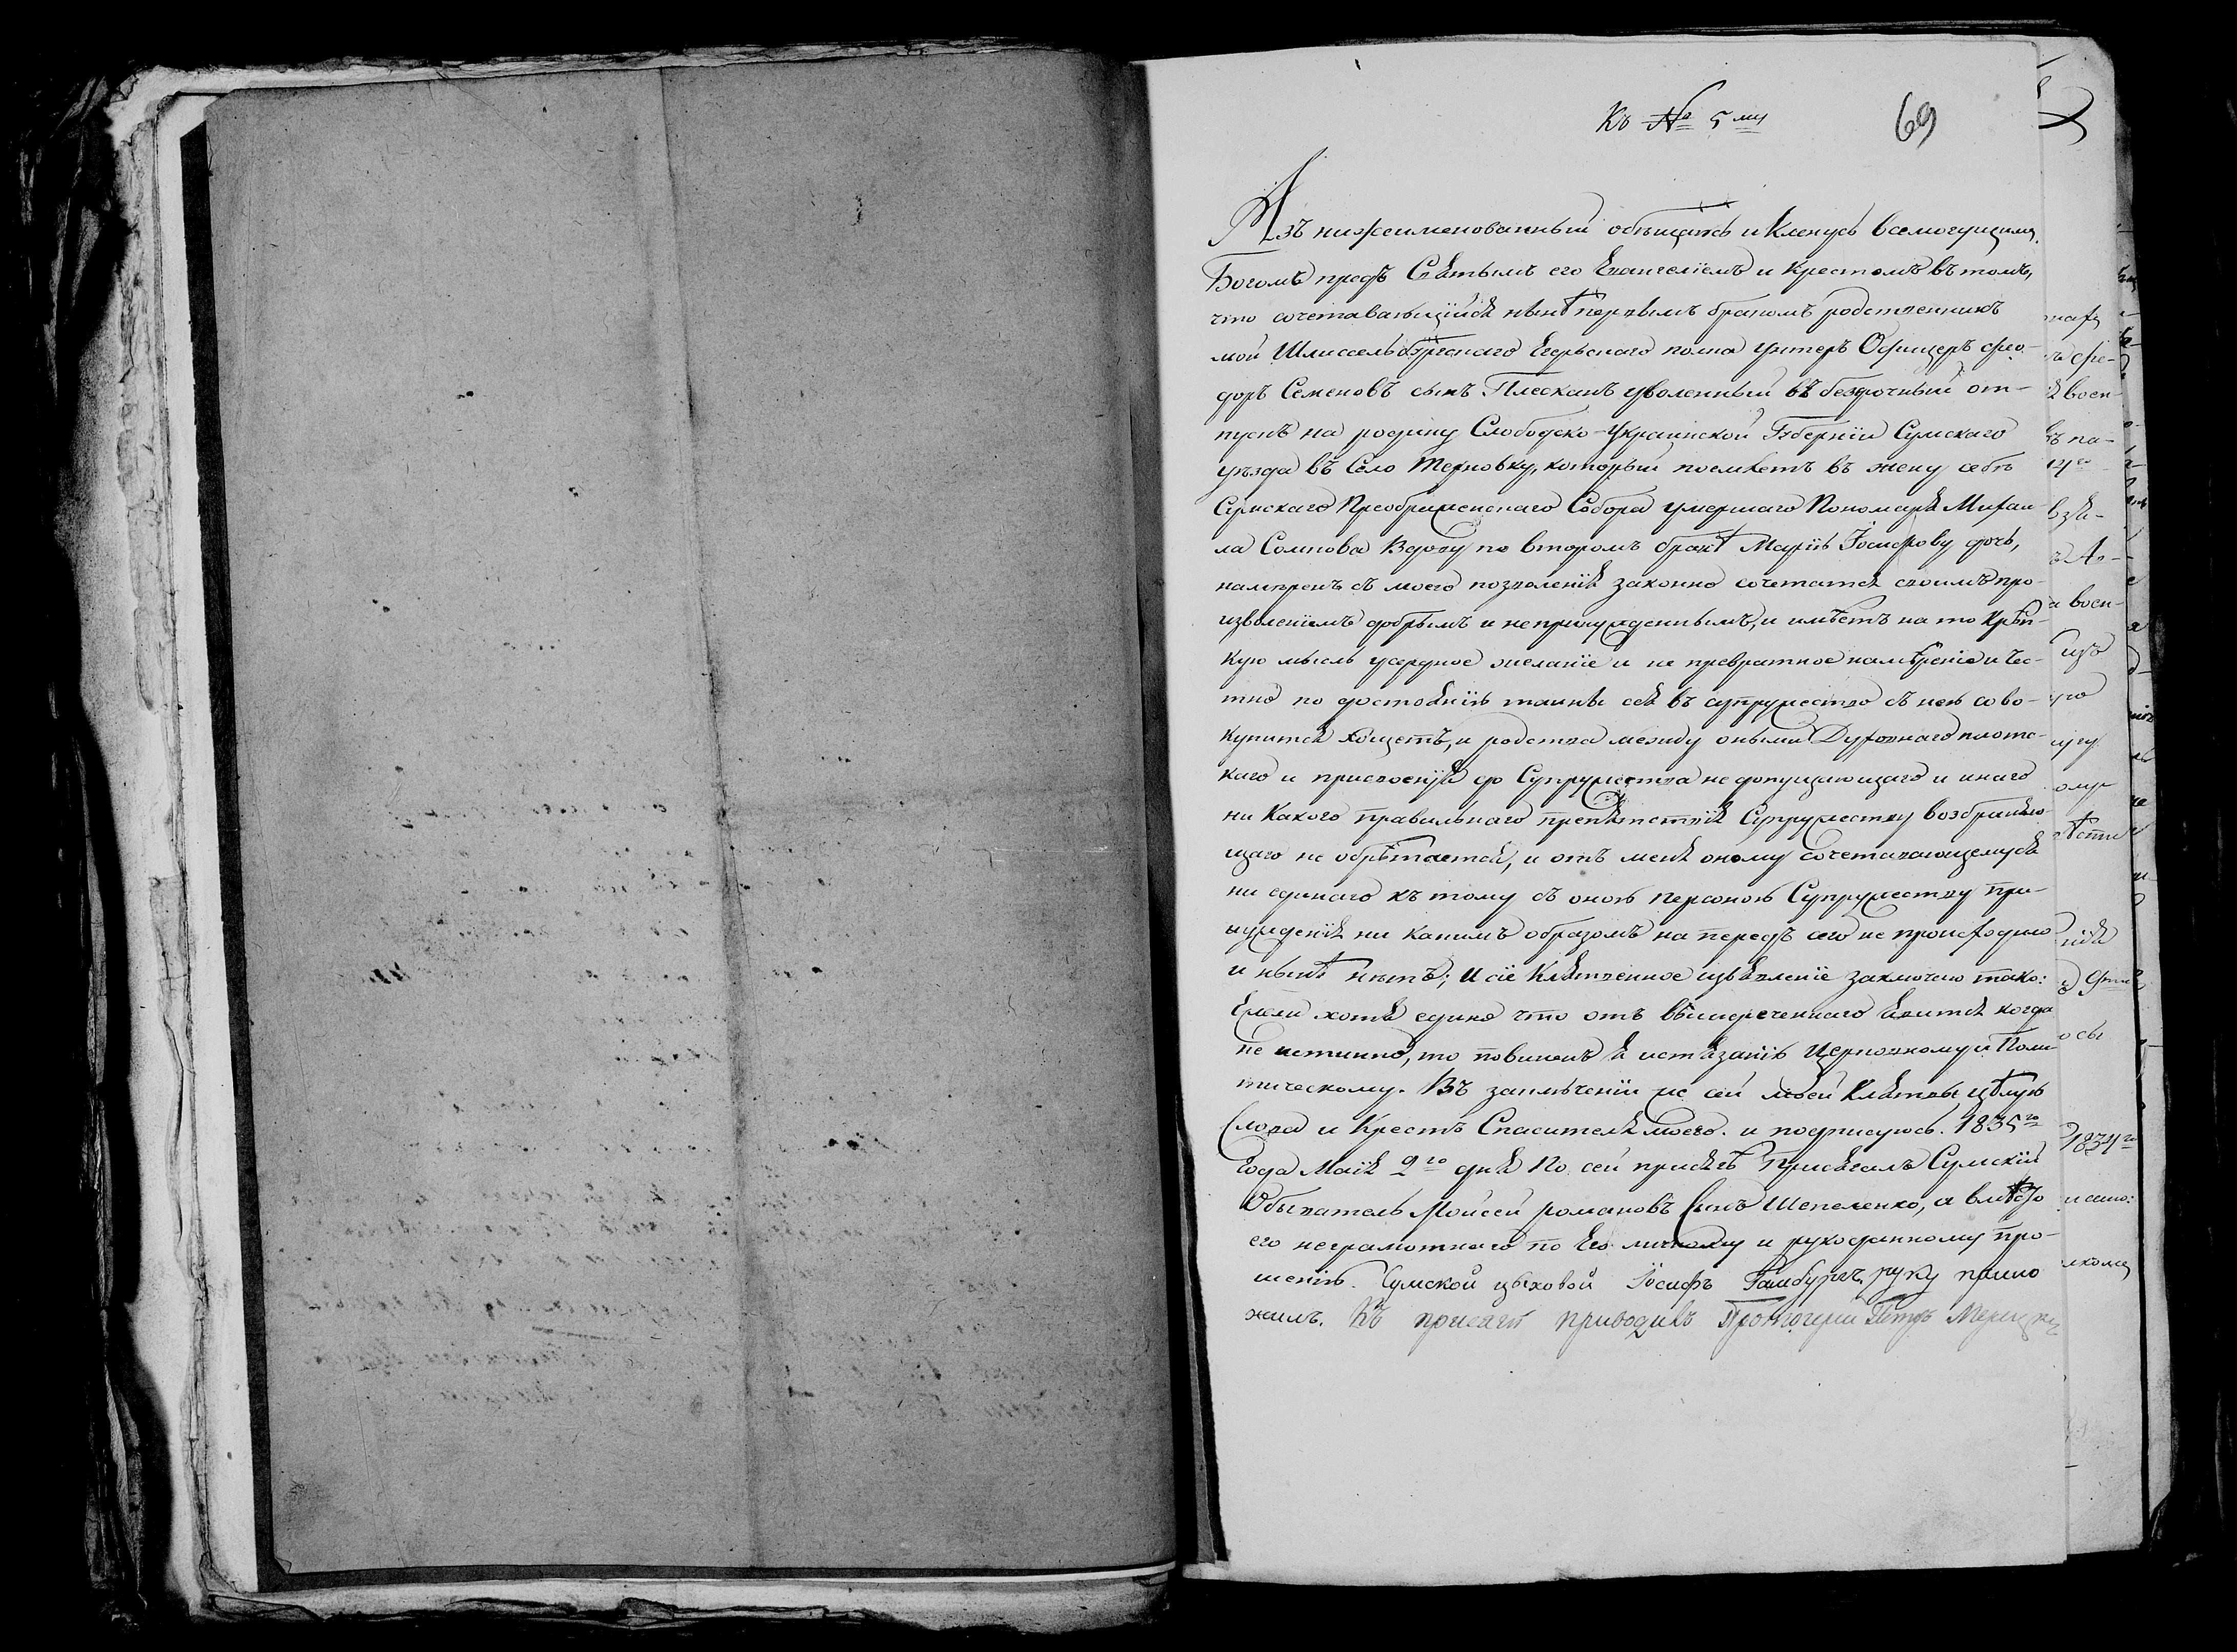 Къ № 5му
69
Азъ нижеименованный обѣщаюсь и Кленусь всемогущимъ
Богомъ предъ Святымъ его Евангеліемъ и Крестомъ въ томъ,
что сочетавающійся нынѣ первымъ бракомъ родственникъ
мой Шлиссельбургскаго Егерьскаго полка Унтеръ Офицеръ Фео-
доръ Семеновъ сынъ Плесканъ уволенный въ безсрочный от-
пускъ на родину Слободско-Украинской Губерніи Сумскаго
уѣзда въ Село Терновку, который поемлетъ въ жену себѣ
Сумскаго Преображенскаго Собора умершаго Пономаря Михаи
ла Вдову по второмъ бракѣ Марію Іосифову дочь,
намѣренъ съ моего позволенія законно сочетатся своимъ про-
изволеніемъ добрымъ и непринужденнымъ, и имѣетъ на то крѣп-
кую мысль усердное желаніе и не превратное намѣреніе и чес-
тно по достоянію тайны сея въ супружество съ нею сово-
купится хощетъ, и родства между оными Духовнаго плотс-
каго и присвоенія до Супружества не допущающаго и инаго
ни Какого правильнаго препятствія Супружеству возбраняю-
щаго не обрѣтается, и отъ меня оному сочетавающемуся
ни единаго къ тому съ оною персоною Супружеству при-
нужденія ни какимъ образомъ на передъ сего не происходило
и нынѣ нѣтъ; И сіе Клятвенное изъявленіе заключаю тако:
Ежели хотя едино что отъ вышереченнаго явится когда
не истинно, то повиненъ я истязанію Церковному и Поли
тическому. Въ заключеніи же сей моей Клятвы цѣлую
Слова и Крестъ Спасителя моего. и подписуюсь. 1835го
Года Маія 9го дня По сей присягѣ Присягалъ Сумскій
Обыватель Мойсей романовъ Сынъ Шепеленко, а вмѣсто
его неграмотнаго по Его личному и рукоданному про-
шенію. Сумской цеховой Іосифъ Гамбургъ руку прило
жилъ. Къ присягѣ приводивъ Протоіерей Петръ